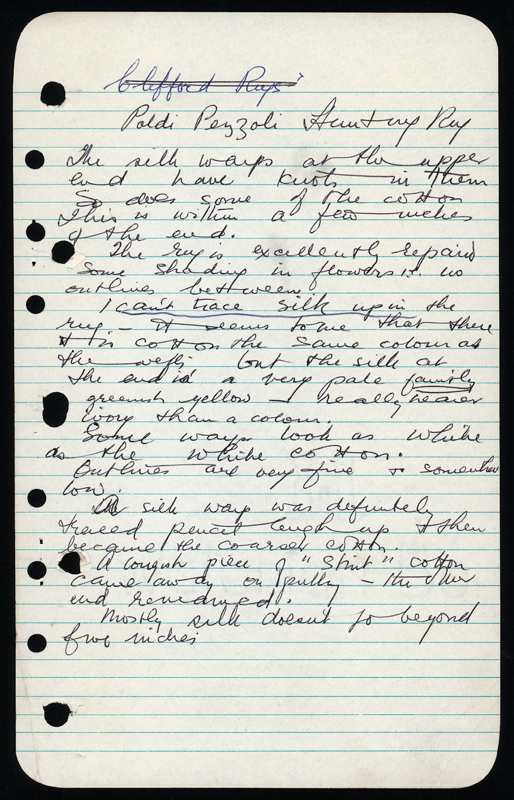 Clifford Rugs
Poldi Pezzoli Hunting Rug
The silk warps at the upper
end have knots in them
So does some of the cotton
This is within a few inches
of the end.
The rug is excellently repaired
Some shading in flowers i.e. no
outlines between
I can't trace silk up in the
rug - it seems to me that there
it is cotton the same colour as
the wefts but the silk at
the end is a very pale faintly
greenish yellow - really nearer
ivory than a colour.
Some warps look as white
as the white cotton.
Outlines are very fine & somewhat
low.
A silk warp was definitely
traced pencil length up & then
became the coarser cotton.
A longish piece of "Stint" cotton
came away on pulling - the other
end remained.
Mostly silk doesn't go beyond
five inches